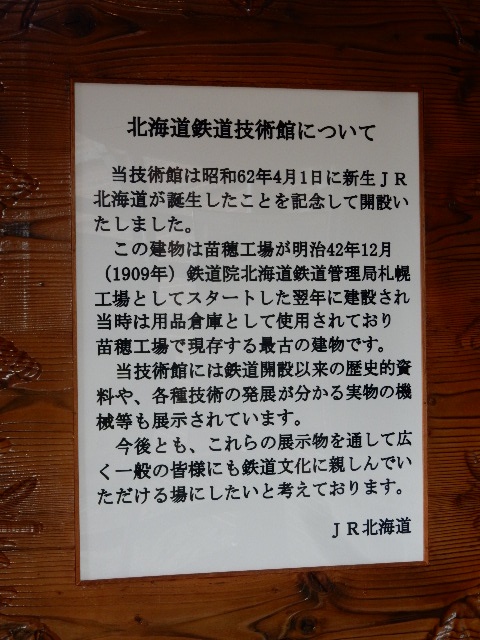 北海道鉄道技術館について
当技術館は昭和62年4月1日に新生ＪＲ
北海道が誕生したことを記念して開設い
たしました。
この建物は苗穂工場が明治42年12月
（1909年）鉄道院北海道鉄道管理局札幌
工場としてスタートした翌年に建設され
当時は用品倉庫として使用されており
苗穂工場で現存する最古の建物です。
当技術館には鉄道開設以来の歴史的資
料や、各種技術の発展が分かる実物の機
械等も展示されています。
今後とも、これらの展示物を通して広
く一般の皆様にも鉄道文化に親しんでい
ただける場にしたいと考えております。
ＪＲ北海道